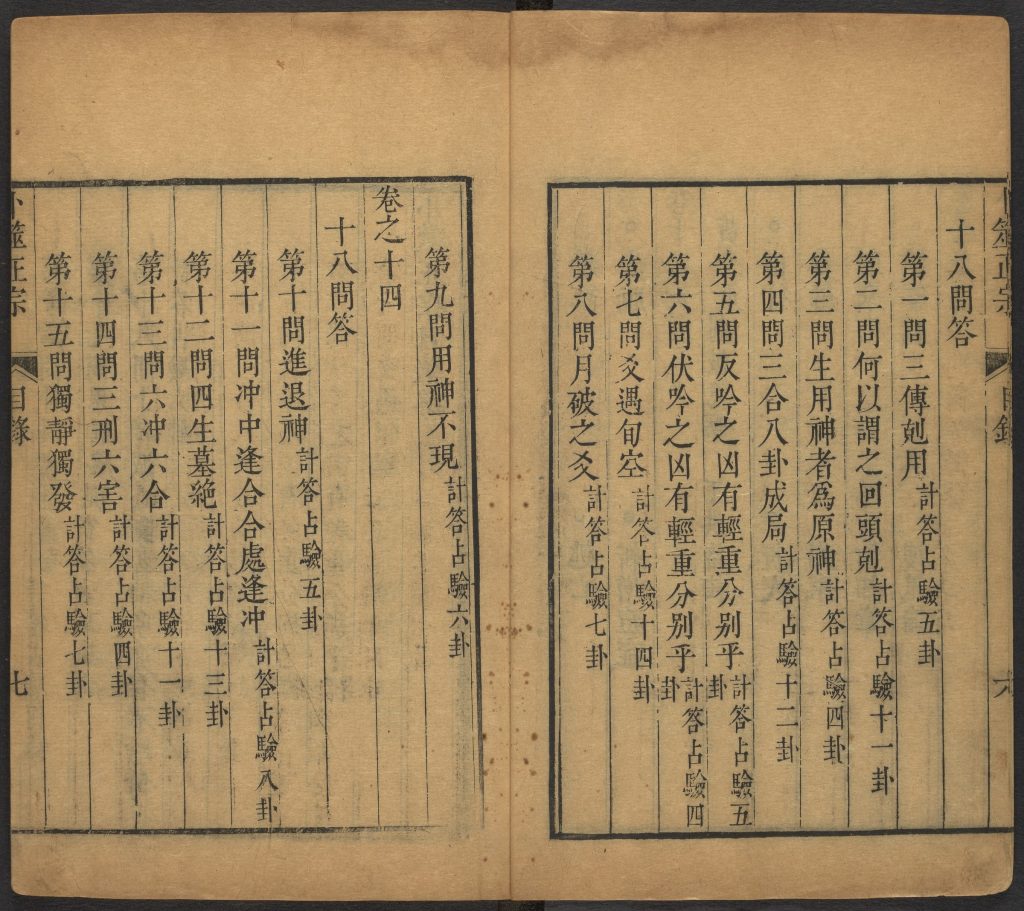 卜筮正宗 目錄 六
十八問答
第一問三傳尅用 計答占驗五卦
第二問何以謂之回頭尅 計答占驗十一卦
第三問生用神者爲原神 計答占驗四卦
第四問三合八卦成局 計答占驗十二卦
第五問反吟之凶有輕重分别乎 計答占驗五卦
第六問伏吟之凶有輕重分别乎 計答占驗四卦
第七問爻遇旬空 計答占驗十四卦
第八問月破之爻 計答占驗七卦
第九問用神不現 計答占驗六卦
卷之十四
十八問答
第十問進退神 計答占驗五卦
第十一問冲中逢合合處逢冲 計答占驗八卦
第十二問四生墓絶 計答占驗十三卦
第十三問六冲六合 計答占驗十一卦
第十四問三刑六害 計答占驗四卦
第十五問獨靜獨發 計答占驗七卦
卜筮正宗 目錄 七